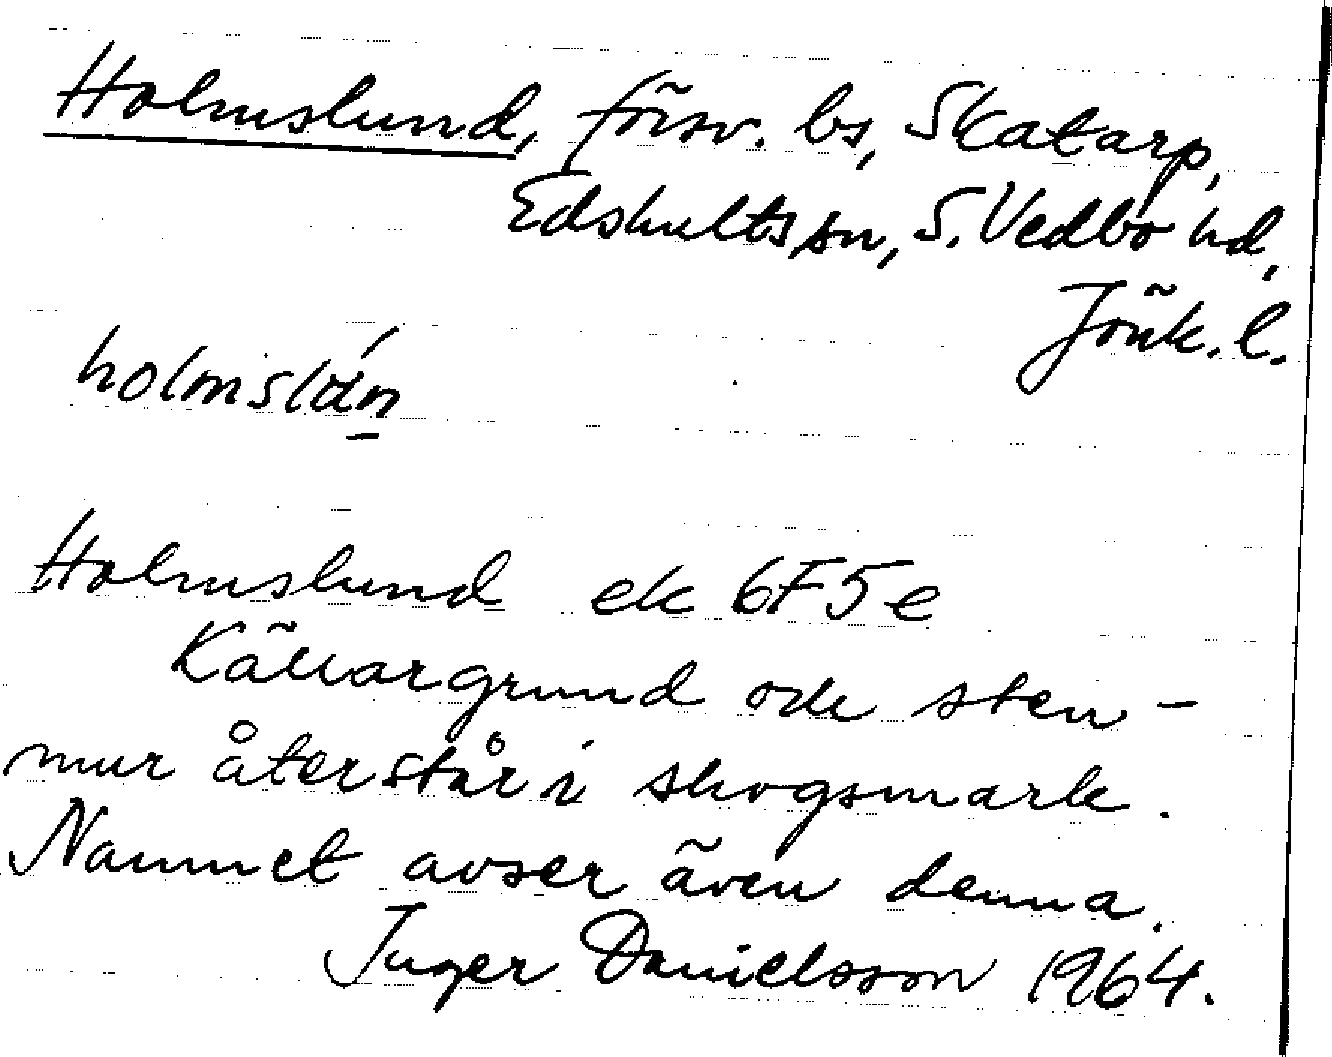 Holmslund, försv. bs, Skatarp,
Edshults sn, S. Vedbo hd,
Jönk. l.
Holmslund ek 6F5e
Källargrund och sten-
mur återstår i skogsmark.
Namnet avser även denna.
Inger Danielsson 1964.